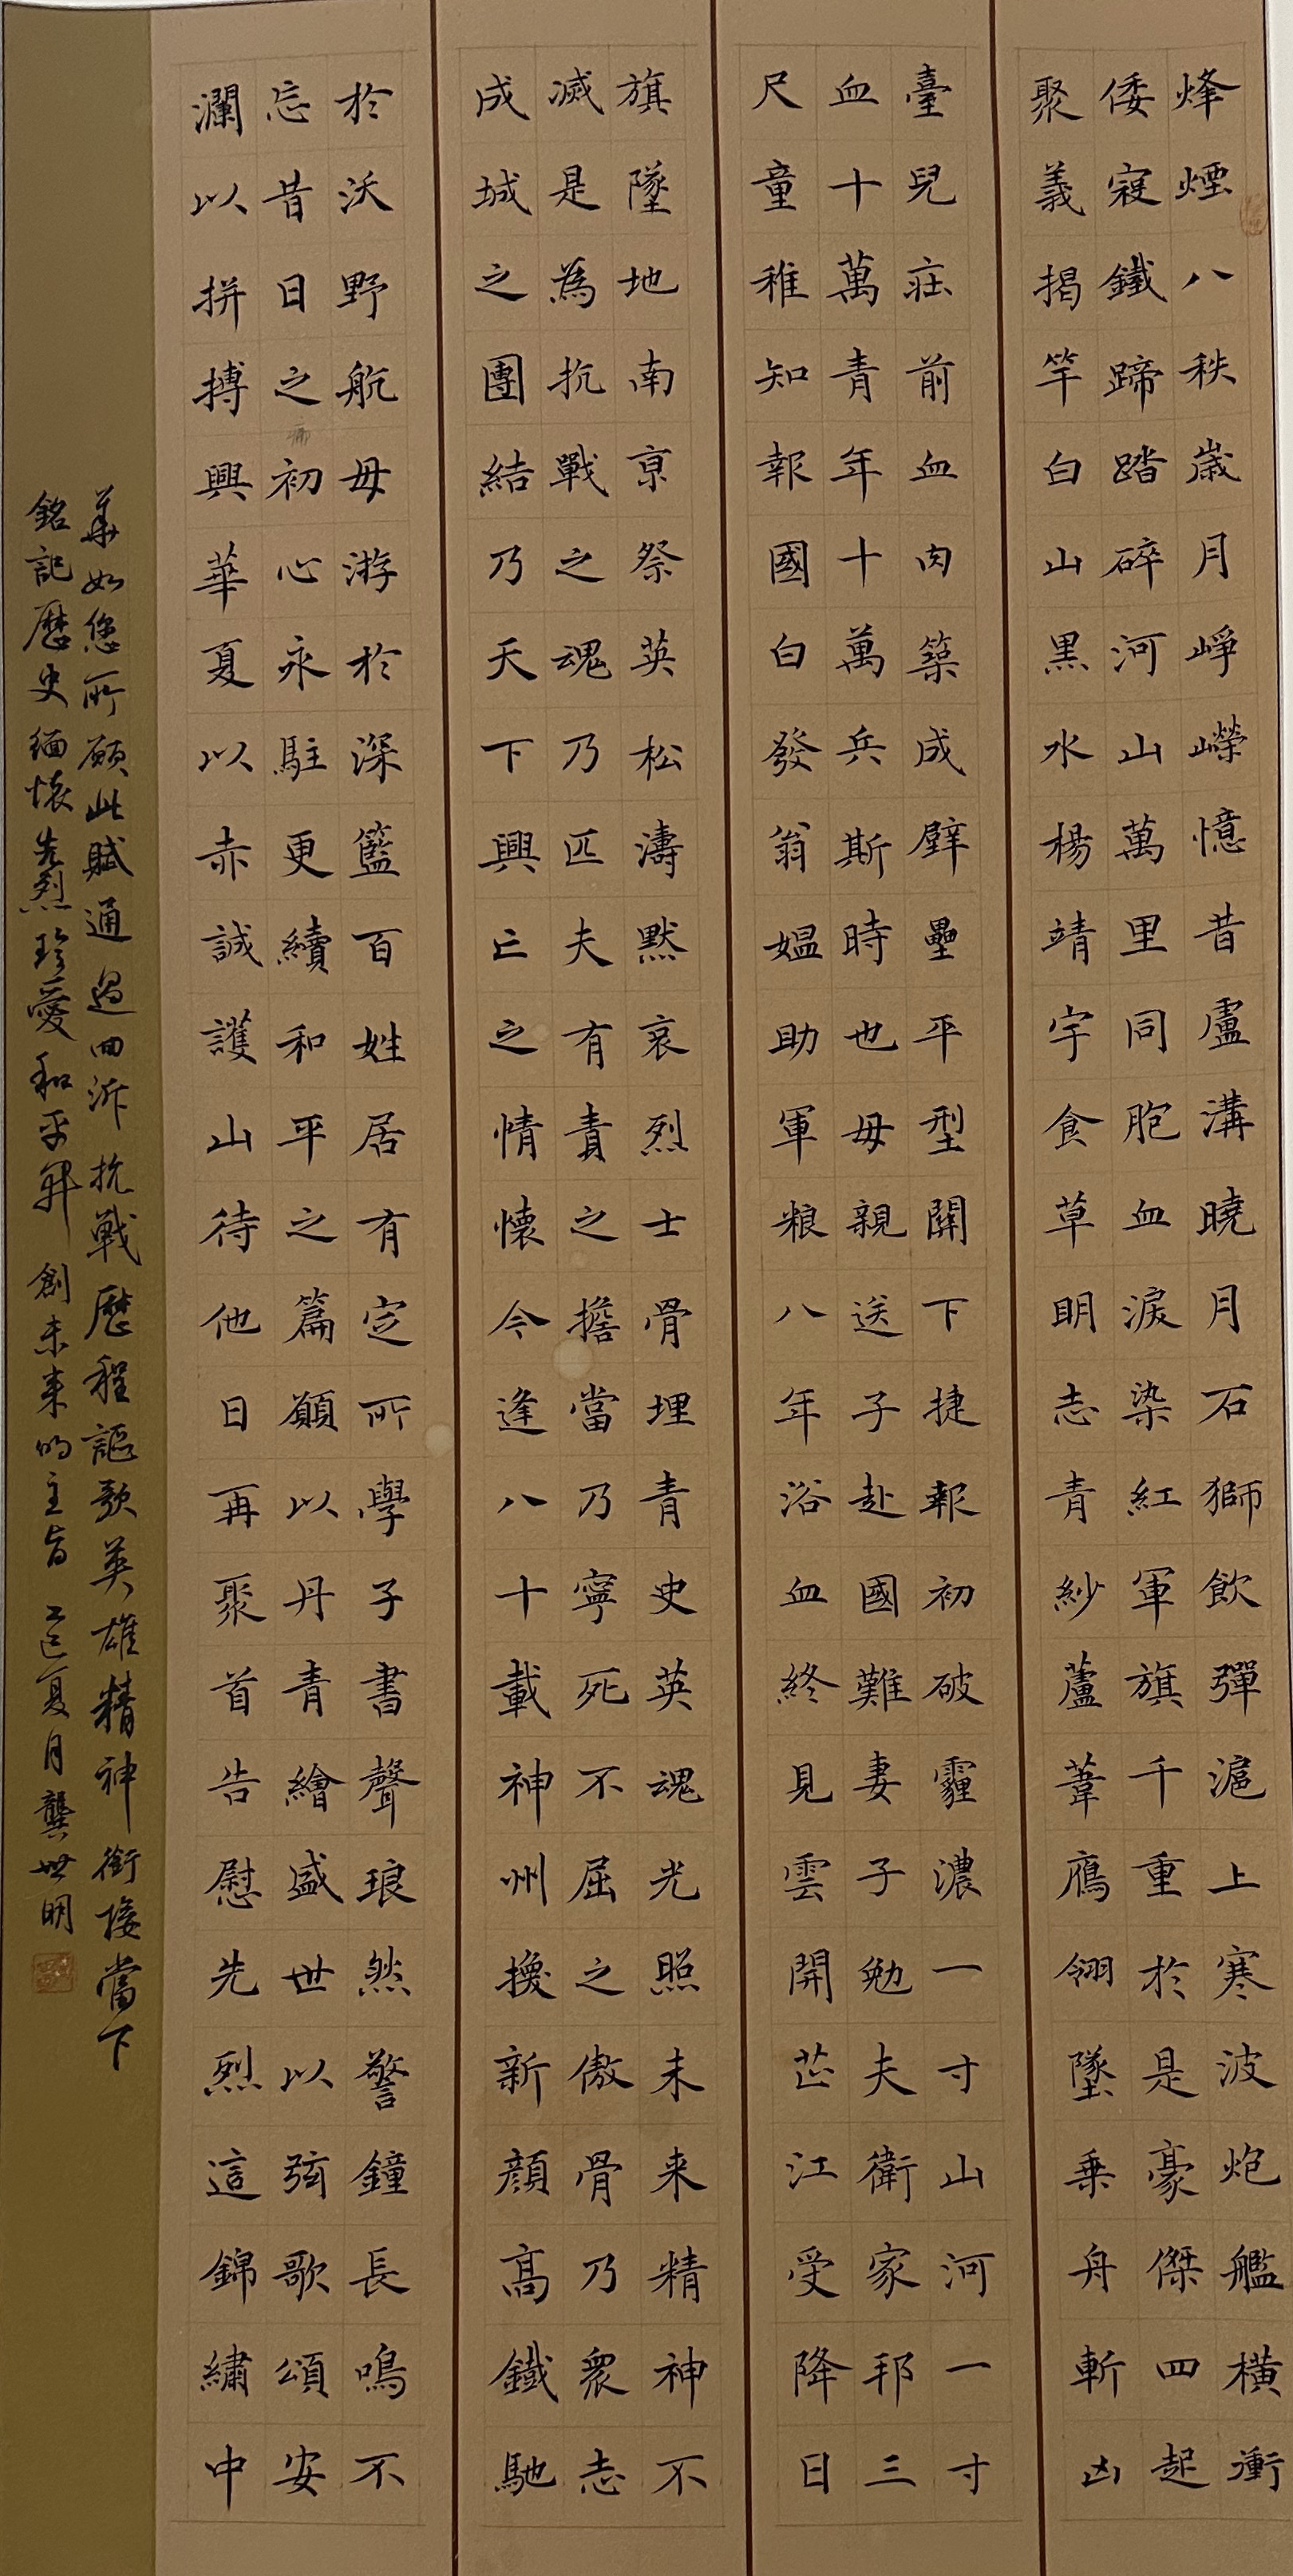 烽煙八秩歲月崢嶸憶昔盧溝曉月石獅飲彈滬上寒波炮艦橫衝
倭寇鐵蹄踏碎河山萬里同胞血淚染紅軍旗千重於是豪傑四起
聚義揭竿白山黑水楊靖宇食草明志青紗蘆葦鴈翎墜乘舟斬凶
臺兒莊前血肉築成壁壘平型關下捷報初破霾濃一寸山河一寸
血十萬青年十萬兵斯時也母親送子赴國難妻子勉夫衛家邦三
尺童稚知報國白發翁媼助軍粮八年浴血終見雲開芷江受降日
旗墜地南京祭英松濤默哀烈士骨埋青史英魂光照未来精神不
滅是為抗戰之魂乃匹夫有責之擔當乃寧死不屈之傲骨乃衆志
成城之團結乃天下興亡之情懷今逢八十載神州換新顔高鐵馳
於沃野航母游於深籃百姓居有定所學子書聲琅然警鐘長鳴不
忘昔日之痛初心永駐更續和平之篇願以丹青繪盛世以弦歌頌安
瀾以拼搏興華夏以赤誠護山待他日再聚首告慰先烈這錦繡中
華如您所願此賦通過回泝抗戰歷程謳歌英雄精神銜接當下
銘記歷史緬懷先烈珍愛和平開創未来的主旨乙巳夏月龔世明